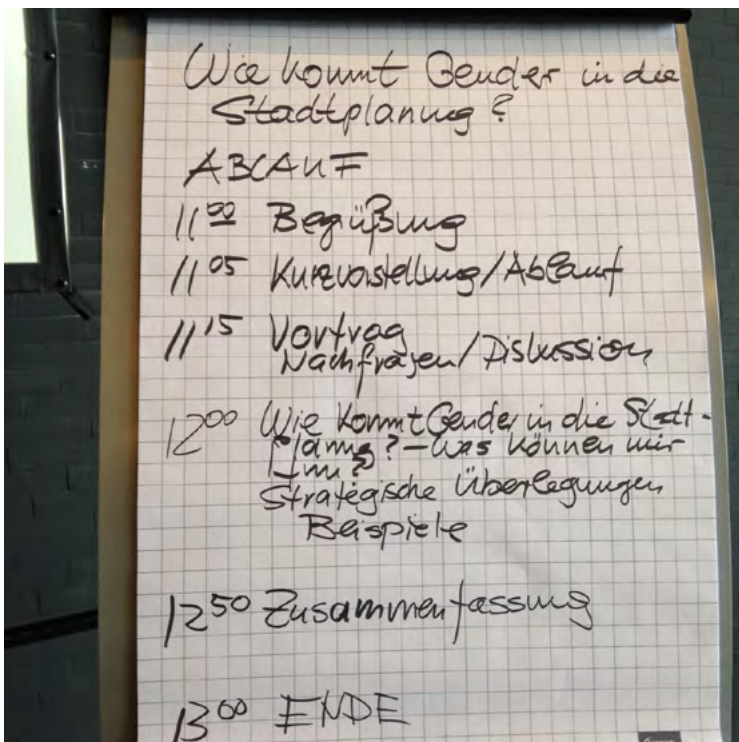 Wie kommt Gender in die
Stadtplanung?
ABLAUF
11⁰⁰ Begrüßung
11⁰⁵ Kurzvorstellung/Ablauf
11¹⁵ Vortrag
Nachfragen/Diskussion
12⁰⁰ Wie kommt Gender in die Stadt-
planung? – Was können wir
tun?
Strategische Überlegungen
Beispiele
12⁵⁰ Zusammenfassung
13⁰⁰ ENDE